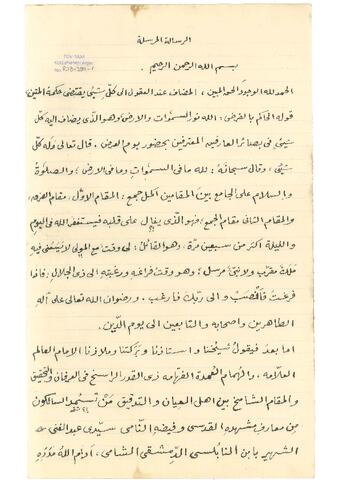 الرسالة المرسلة
TDV İSAM
Kütüphanesi Arşivi
No RİB-
بسم الله الرحمن الرحيم
الحمد لله الوجود الحق المبين ، المضاف عند العقول الى كلّ شيئ يقتضي حكمة المتين
قوله الحاكم بالفرض : الله نور السموات والارض وهو الذى يضاف اليه كل
شيئ في بصائر العارفين المعترفين بحضور يوم العرض . قال تعالى وله كلّ
شيئ ، وقال سبحانه : لله ما في السموات وما في الارض ، والصلوة
والسلام على الجامع بين المقامين اكمل جمع : المقام الاوّل ، مقام الفرق ،
والمقام الثاني مقام الجمع ، فهو الذى يغان على قلبه فيستغفر الله في اليوم
والليلة اكثر من سبعين مرّة ، وهو القائل : لى وقت مع المولى لا يسعنى فيه
ملك مقرّب ولا نبىّ مرسل ، وهو وقت فراغه ورغبته الى ذى الجلال ، فاذا
فرغت فانصب والى ربّك فارغب . ورضوان الله تعالى على آله
الطاهرين واصحابه والتابعين الى يوم الدّين .
اما بعد فيقول شيخنا واستاذنا وبركتنا وملاذنا الامام العالم
العلّامه ، والهمام العمدة الفهّامه ذى القدر الراسخ في العرفان والتحقيق
والمقام الشامخ بين اهل العيان والتدقيق من تستمد السالكون
من معارف مشهده القدسى وفيضه النّامى سيّدى عبد الغنى
الشهير بابن النابلسى الدّمشقى الشامى ، ادام الله مدده